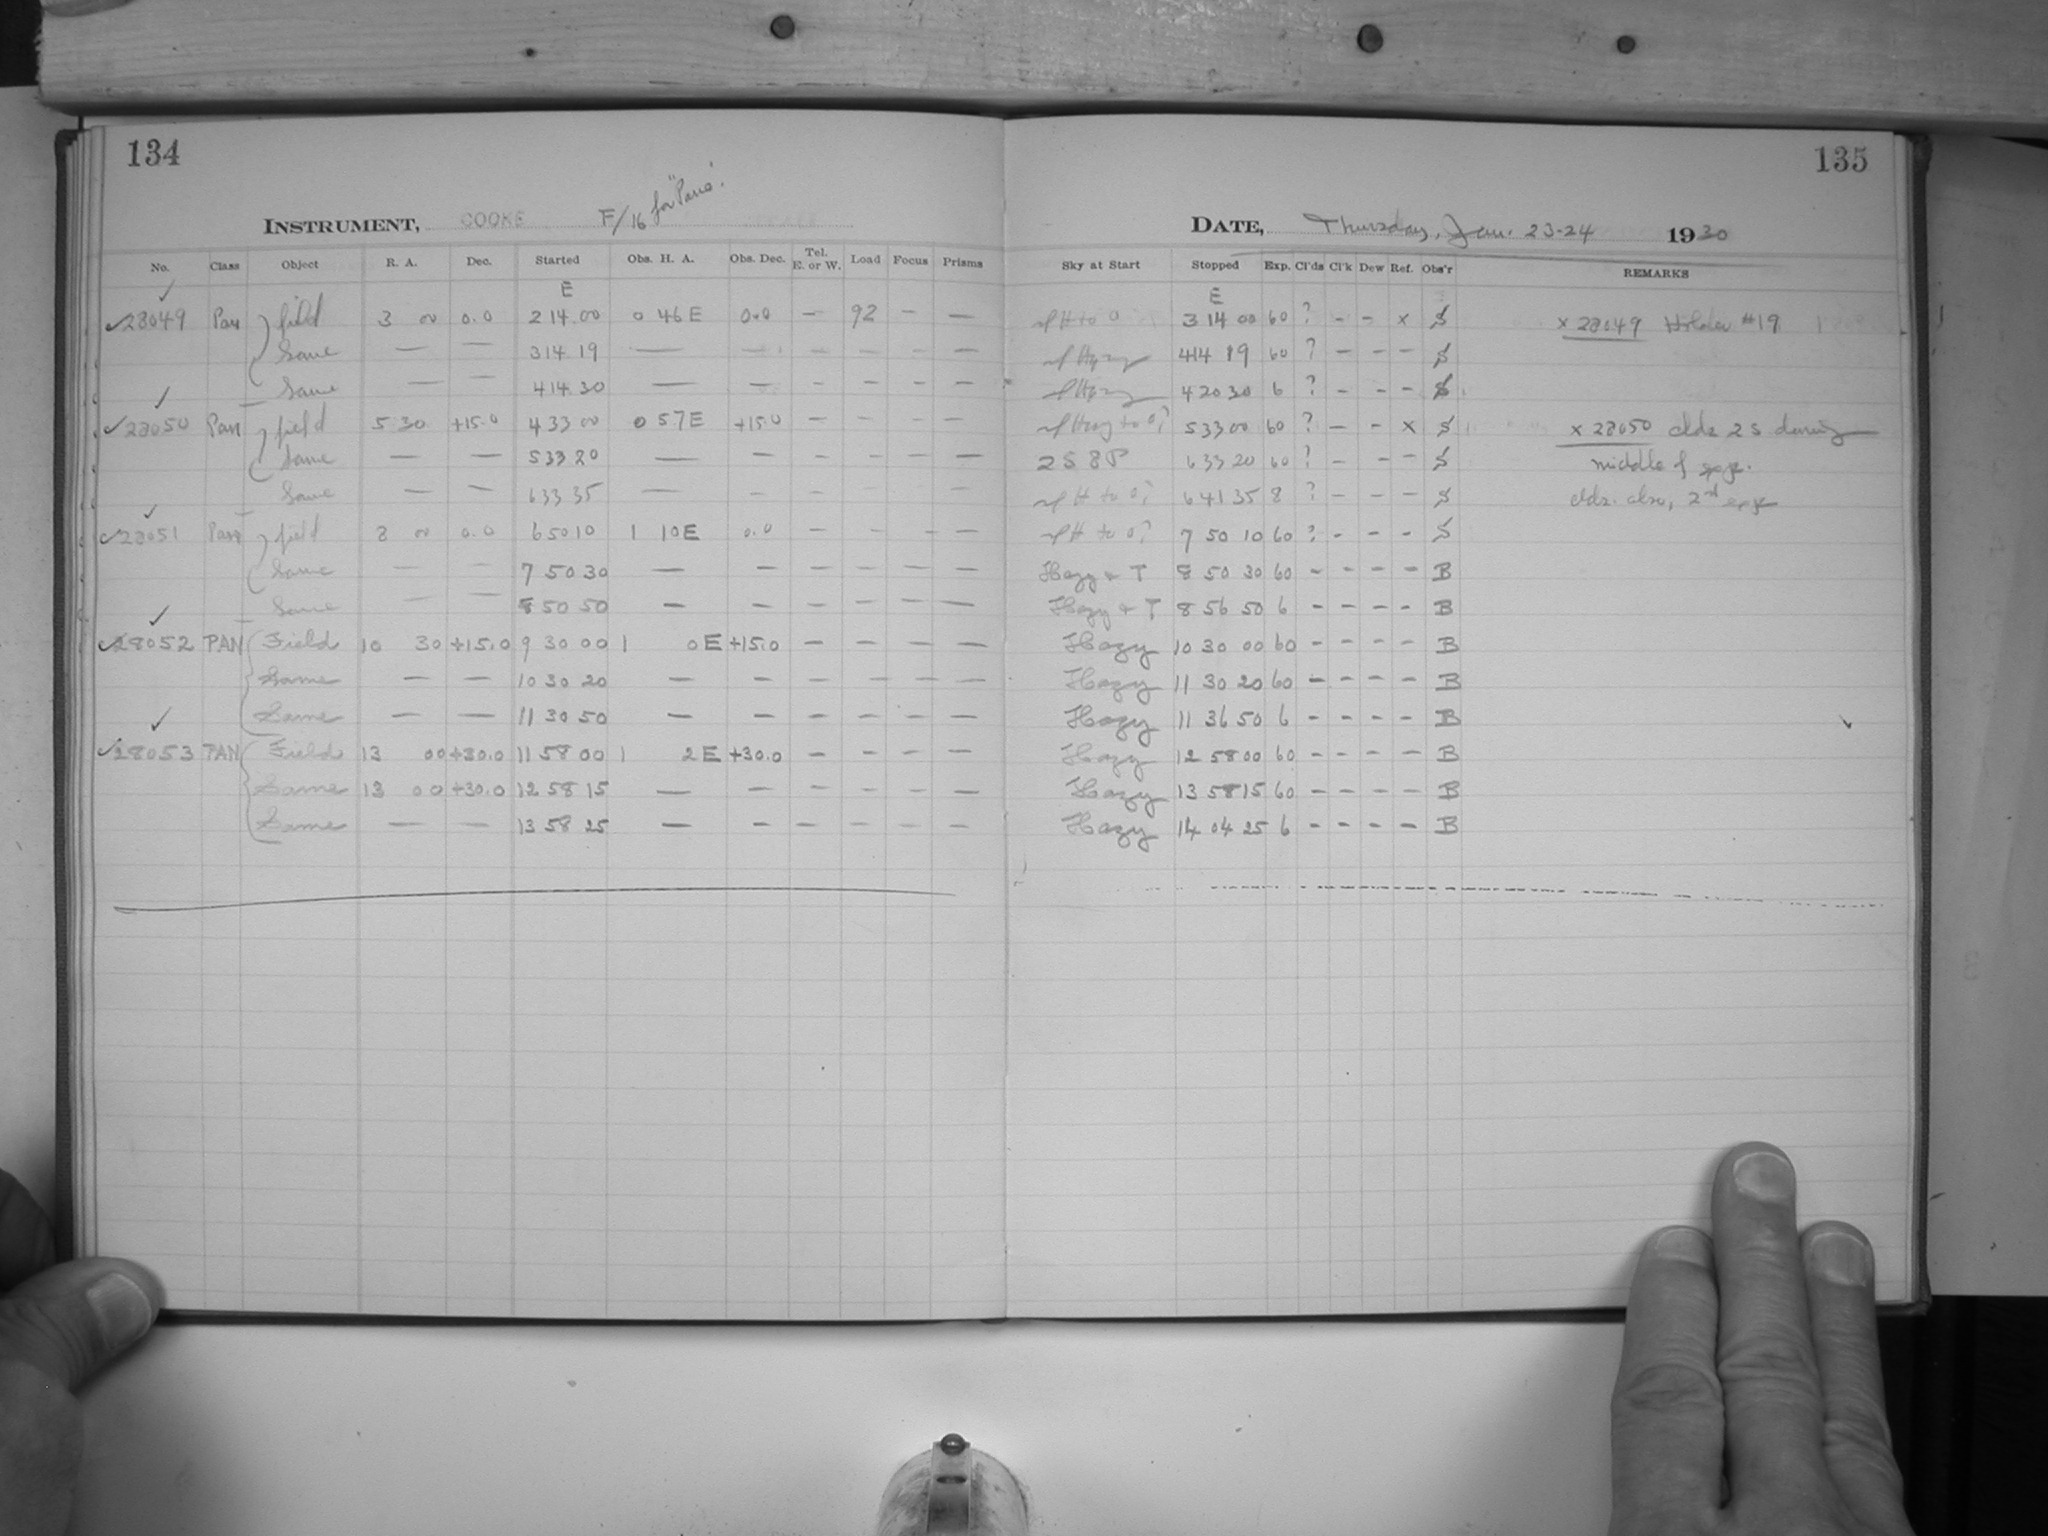 134
INSTRUMENT, COOKE F/16 for "Pans".
No. Class Object R. A. Dec. Started Obs. H. A. Obs. Dec. Tel. E. or W. Load Focus Prisms
E
28049 Pan field 3 00 0.0 2 14 00 0 46 E 0.0 — 92 — —
Same — — 3 14 19 — — — — — —
Same — — 4 14 30 — — — — — —
28050 Pan field 5 30 +15.0 4 33 00 0 57 E +15.0 — — — —
Same — — 5 33 20 — — — — — —
Same — — 6 33 35 — — — — — —
28051 Pan field 8 00 0.0 6 50 10 1 10 E 0.0 — — — —
Same — — 7 50 30 — — — — — —
Same — — 8 50 50 — — — — — —
28052 PAN Field 10 30 +15.0 9 30 00 1 0 E +15.0 — — — —
Same — — 10 30 20 — — — — — —
Same — — 11 30 50 — — — — — —
28053 PAN Field 13 00 +30.0 11 58 00 1 2 E +30.0 — — — —
Same 13 00 +30.0 12 58 15 — — — — — —
Same — — 13 58 25 — — — — — —
135
DATE, Thursday, Jan. 23-24 1930
Sky at Start Stopped Exp. Cl'ds Cl'k Dew Ref. Obs'r REMARKS
E
H to 0 3 14 00 60 ? - - x S x 28049 Holder #19
Hazy 4 14 19 60 ? - - - S
Hazy 4 20 30 6 ? - - - S
Hazy to 0? 5 33 00 60 ? - - x S x 28050 clds 2S during
2 S 8 P 6 33 20 60 ? - - - S middle of exp.
H to 0? 6 41 35 8 ? - - - S clds. also, 2nd exp
H to 0? 7 50 10 60 ? - - - S
Hazy + T 8 50 30 60 - - - - B
Hazy + T 8 56 50 6 - - - - B
Hazy 10 30 00 60 - - - - B
Hazy 11 30 20 60 - - - - B
Hazy 11 36 50 6 - - - - B
Hazy 12 58 00 60 - - - - B
Hazy 13 58 15 60 - - - - B
Hazy 14 04 25 6 - - - - B